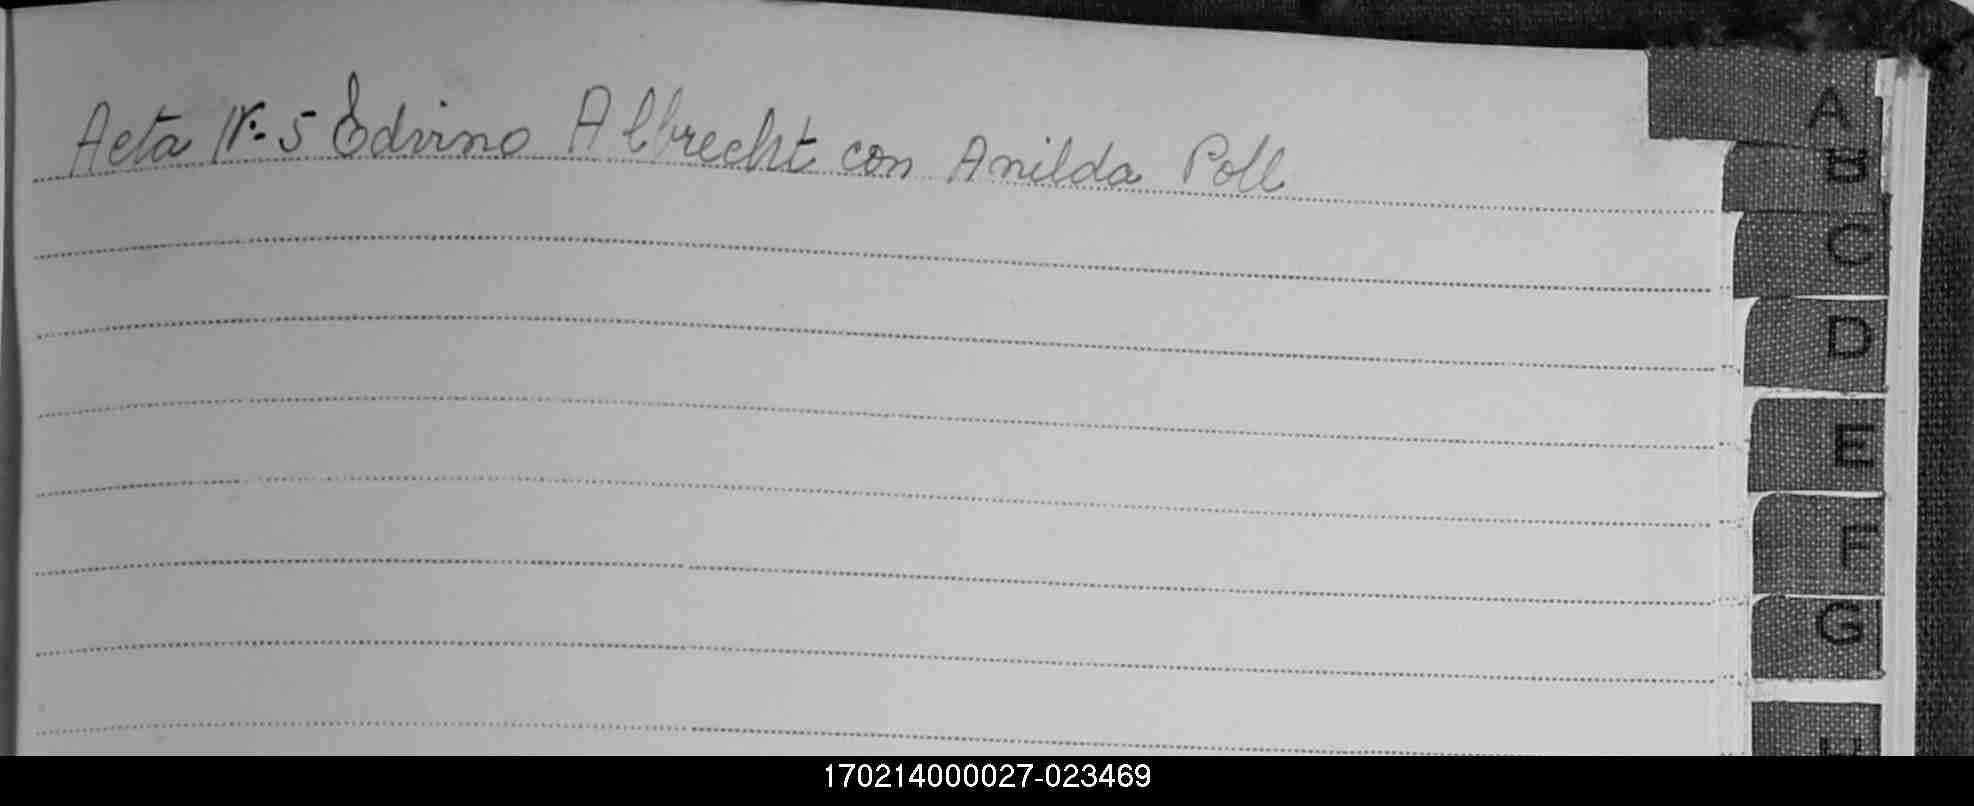 Acta Nr. 5 Edvino Albrecht con Anilda Poll
A
B
C
D
E
F
G
H
170214000027-023469